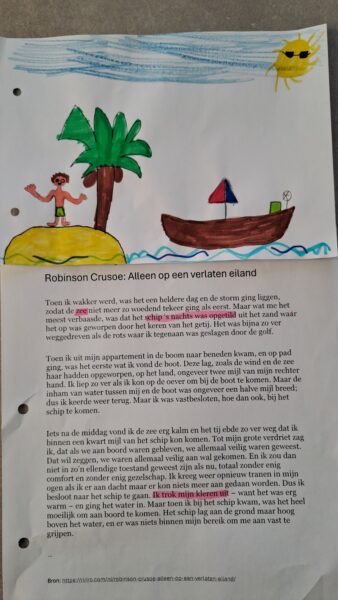 Robinson Crusoe: Alleen op een verlaten eiland
Toen ik wakker werd, was het een heldere dag en de storm ging liggen,
zodat de zee niet meer zo woedend tekeer ging als eerst. Maar wat me het
meest verbaasde, was dat het schip 's nachts was opgetild uit het zand waar
het op was geworpen door het keren van het getij. Het was bijna zo ver
weggedreven als de rots waar ik tegenaan was geslagen door de golf.
Toen ik uit mijn appartement in de boom naar beneden kwam, en op pad
ging, was het eerste wat ik vond de boot. Deze lag, zoals de wind en de zee
haar hadden opgeworpen, op het land, ongeveer twee mijl van mijn rechter
hand. Ik liep zo ver als ik kon op de oever om bij de boot te komen. Maar de
inham van water tussen mij en de boot was ongeveer een halve mijl breed;
dus ik keerde weer terug. Maar ik was vastbesloten, hoe dan ook, bij het
schip te komen.
Iets na de middag vond ik de zee erg kalm en het tij ebde zo ver weg dat ik
binnen een kwart mijl van het schip kon komen. Tot mijn grote verdriet zag
ik, dat als we aan boord waren gebleven, we allemaal veilig waren geweest.
Dat wil zeggen, we waren allemaal veilig aan wal gekomen. En ik zou dan
niet in zo'n ellendige toestand geweest zijn als nu, totaal zonder enig
comfort en zonder enig gezelschap. Ik kreeg weer opnieuw tranen in mijn
ogen als ik er aan dacht maar er kon niets meer aan gedaan worden. Dus ik
besloot naar het schip te gaan. Ik trok mijn kleren uit – want het was erg
warm – en ging het water in. Maar toen ik bij het schip kwam, was het heel
moeilijk om aan boord te komen. Het schip lag aan de grond maar hoog
boven het water, en er was niets binnen mijn bereik om me aan vast te
grijpen.
...